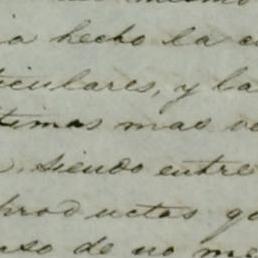 hecho la
ticulares, y la
timas mas
siendo entre
productos
uso de no me